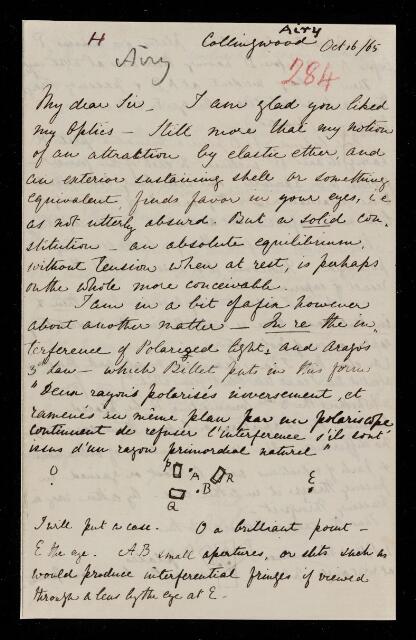 Airy
H
Collingwood Oct 16/65
Airy
284
My dear Sir_ I am glad you liked
my Optics - Still more that my notion
of an attraction by elastic ether, and
an exterior sustaining shell or something
equivalent, finds favor in your eyes, i.e
as not utterly absurd. But a solid con-
stitution - an absolute equilibrium,
without tension when at rest, is perhaps
on the whole more conceivable.
I am in a bit of a fix however
about another matter - In re the in
terference of Polarized light, and Arago's
3d Law - which Billet puts in this form
"Deux rayons polarisés inversement, et
ramenés in même plan par un polariscope
continuent de refuser l'interference s'ils sont
issus d'un rayon primordial naturel"
O P A R E
B
Q
I will put a case. O a brilliant point -
E the eye. A B small apertures, or slits such as
would produce interferential fringes if viewed
through a lens by the eye at E -